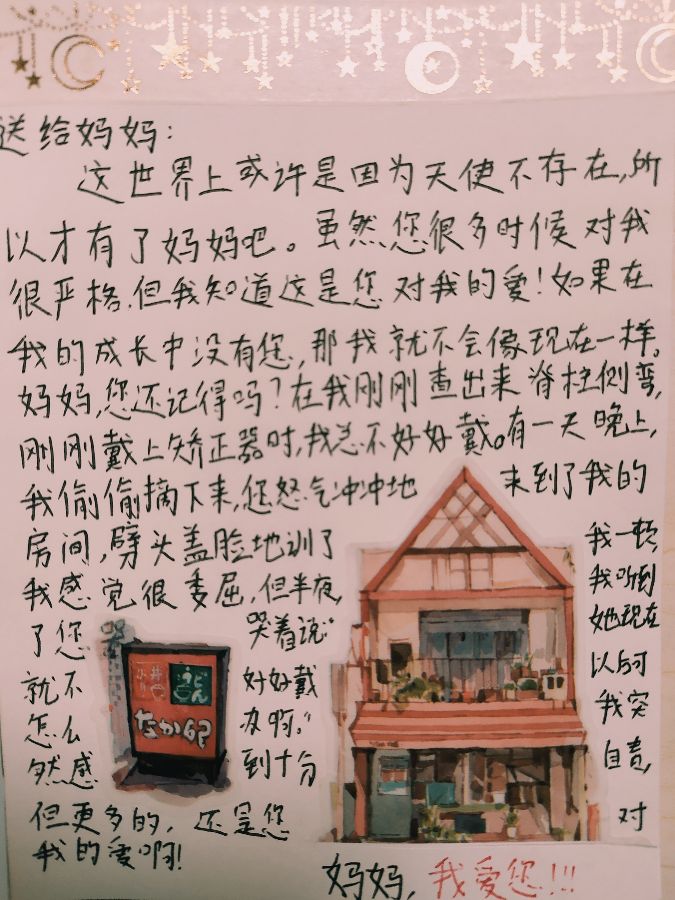 送给妈妈:
这世界上或许是因为天使不存在,所
以才有了妈妈吧。虽然您很多时候对我
很严格,但我知道这是您对我的爱!如果在
我的成长中没有您,那我就不会像现在一样。
妈妈,您还记得吗?在我刚刚查出来脊柱侧弯,
刚刚戴上矫正器时,我总不好好戴。有一天晚上,
我偷偷摘下来,您怒气冲冲地 来到了我的
房间,劈头盖脸地训了 我一顿,
我感觉很委屈,但半夜, 我听到
了您 哭着说:“ 她现在
就不 好好戴 以后可
怎么 办啊。” 我突
然感 到十分 自责,
但更多的,还是您 对
我的爱啊!
妈妈,我爱您!!!
うどん
なか卯